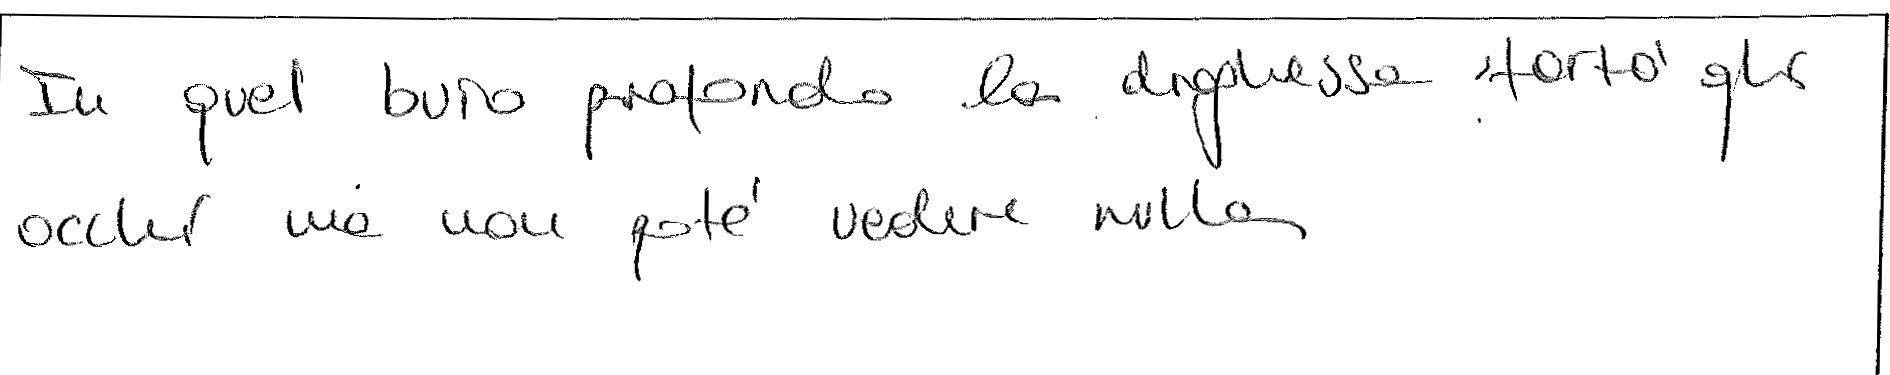 In quel buio profondo la draghessa stortò gli
occhi ma non poté vedere nulla